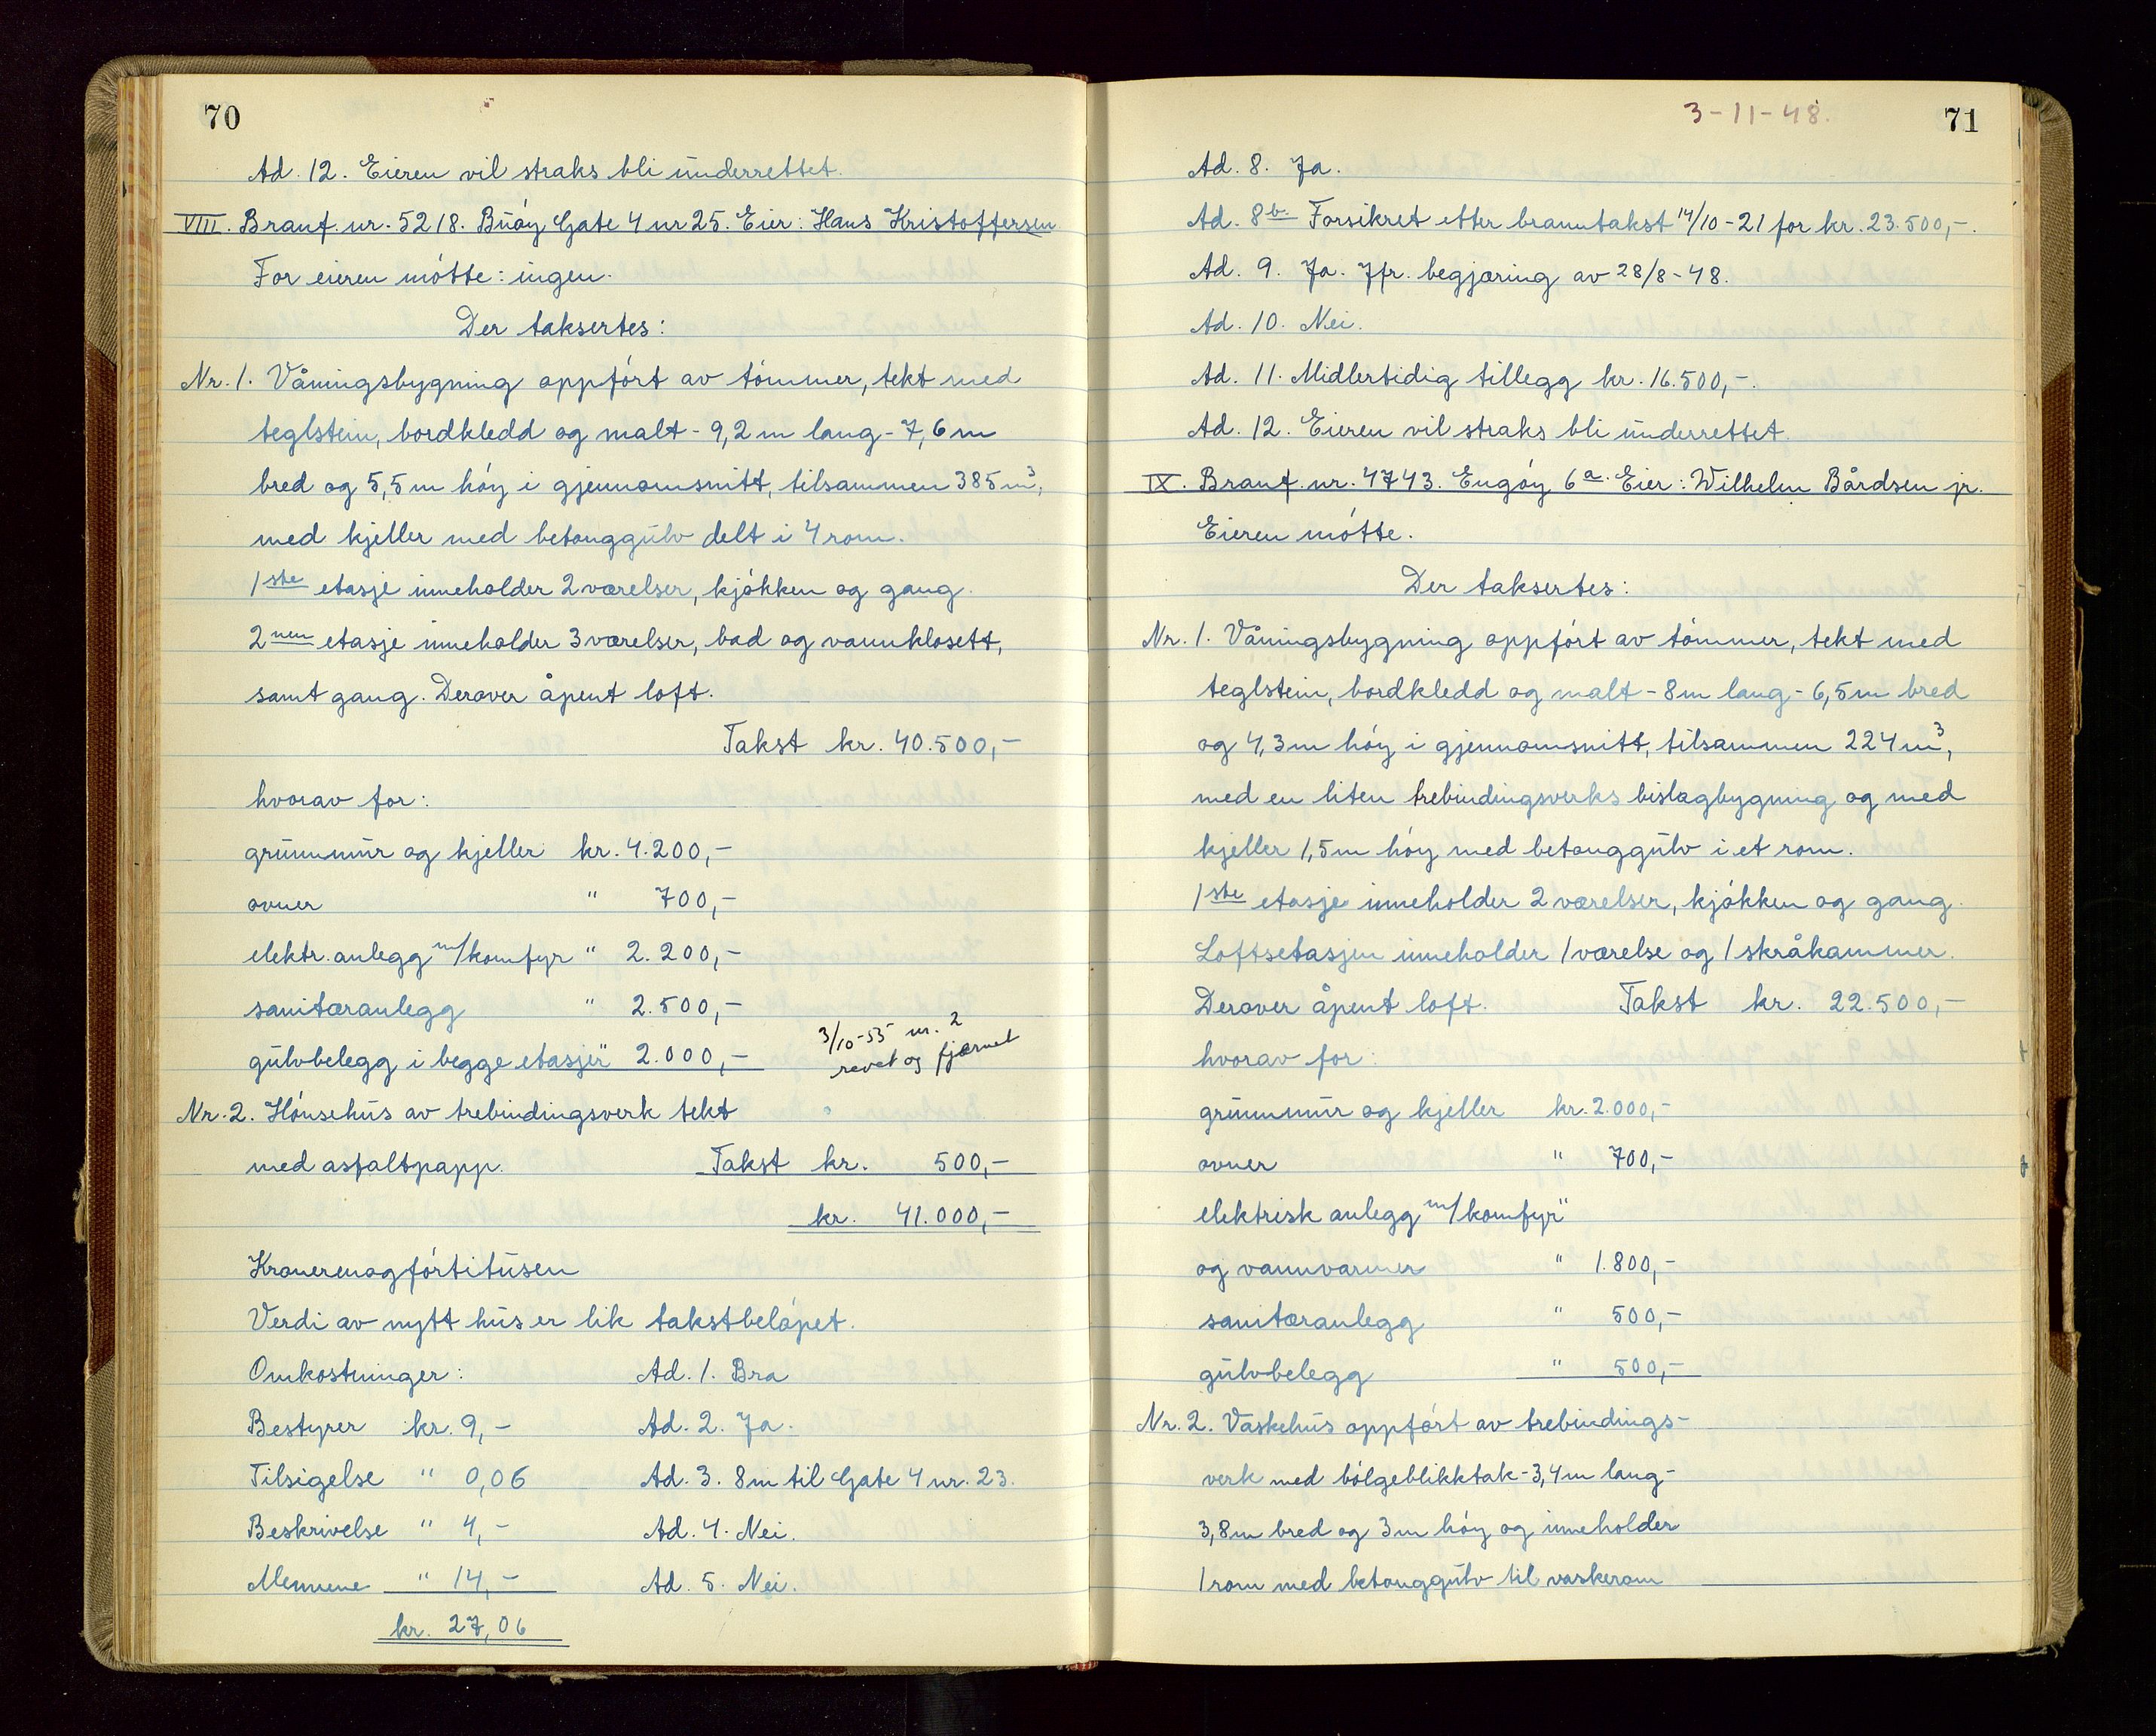 70
Ad. 12. Eieren vil straks bli underrettet.
VIII. Branf. nr. 5218. Buøy Gate 4 nr 25. Eier: Hans Kristoffersen
For eieren møtte: ingen.
Der taksertes:
Nr. 1. Våningsbygning oppført av tømmer, tekt med
teglstein, bordkledd og malt - 9,2 m lang - 7,6 m
bred og 5,5 m høy i gjennomsnitt, tilsammen 385 m³,
med kjeller med betonggulv delt i 4 rom.
1ste etasje inneholder 2 værelser, kjøkken og gang.
2nen etasje inneholder 3 værelser, bad og vannklosett,
samt gang. Derover åpent loft.
Takst kr. 40.500,-
hvorav for:
grunnmur og kjeller kr. 4.200,-
ovner " 700,-
elektr. anlegg m/komfyr " 2.200,-
sanitæranlegg " 2.500,-
gulvbelegg i begge etasjer " 2.000,-
3/10-55 nr. 2
revet og fjærnet
Nr. 2. Hønsehus av trebindingsverk tekt
med asfaltpapp. Takst kr. 500,-
kr. 41.000,-
Verdi av nytt hus er lik takstbeløpet.
Omkostninger: Ad. 1. Bra
Bestyrer kr. 9,- Ad. 2. Ja.
Tilsigelse " 0,06 Ad. 3. 8 m til Gate 4 nr. 23.
Beskrivelse " 4,- Ad. 4. Nei.
Mennene " 14,- Ad. 5. Nei.
kr. 27,06
3-11-48.
71
Ad. 8. Ja.
Ad. 8b. Forsikret etter branntakst 14/10-21 for kr. 23.500,-.
Ad. 9. Ja. Jfr. begjæring av 28/8-48.
Ad. 10. Nei.
Ad. 11. Midlertidig tillegg kr. 16.500,-.
Ad. 12. Eieren vil straks bli underrettet.
IX. Branf. nr. 4743. Engøy 6a. Eier: Wilhelm Bårdsen jr.
Eieren møtte.
Der taksertes:
Nr. 1. Våningsbygning oppført av tømmer, tekt med
teglstein, bordkledd og malt - 8 m lang - 6,5 m bred
og 4,3 m høy i gjennomsnitt, tilsammen 224 m³,
med en liten trebindingsverks bislagbygning og med
kjeller 1,5 m høy med betonggulv i et rom.
1ste etasje inneholder 2 værelser, kjøkken og gang.
Loftsetasjen inneholder 1 værelse og 1 skråkammer.
Derover åpent loft. Takst kr. 22.500,-
hvorav for:
grunnmur og kjeller kr. 2.000,-
ovner " 700,-
elektrisk anlegg m/komfyr "
og vannvarmer " 1.800,-
sanitæranlegg " 500,-
gulvbelegg " 500,-
Nr. 2. Vaskehus oppført av trebindings-
verk med bølgeblikktak - 3,4 m lang -
3,8 m bred og 3 m høy og inneholder
1 rom med betonggulv til vaskerom